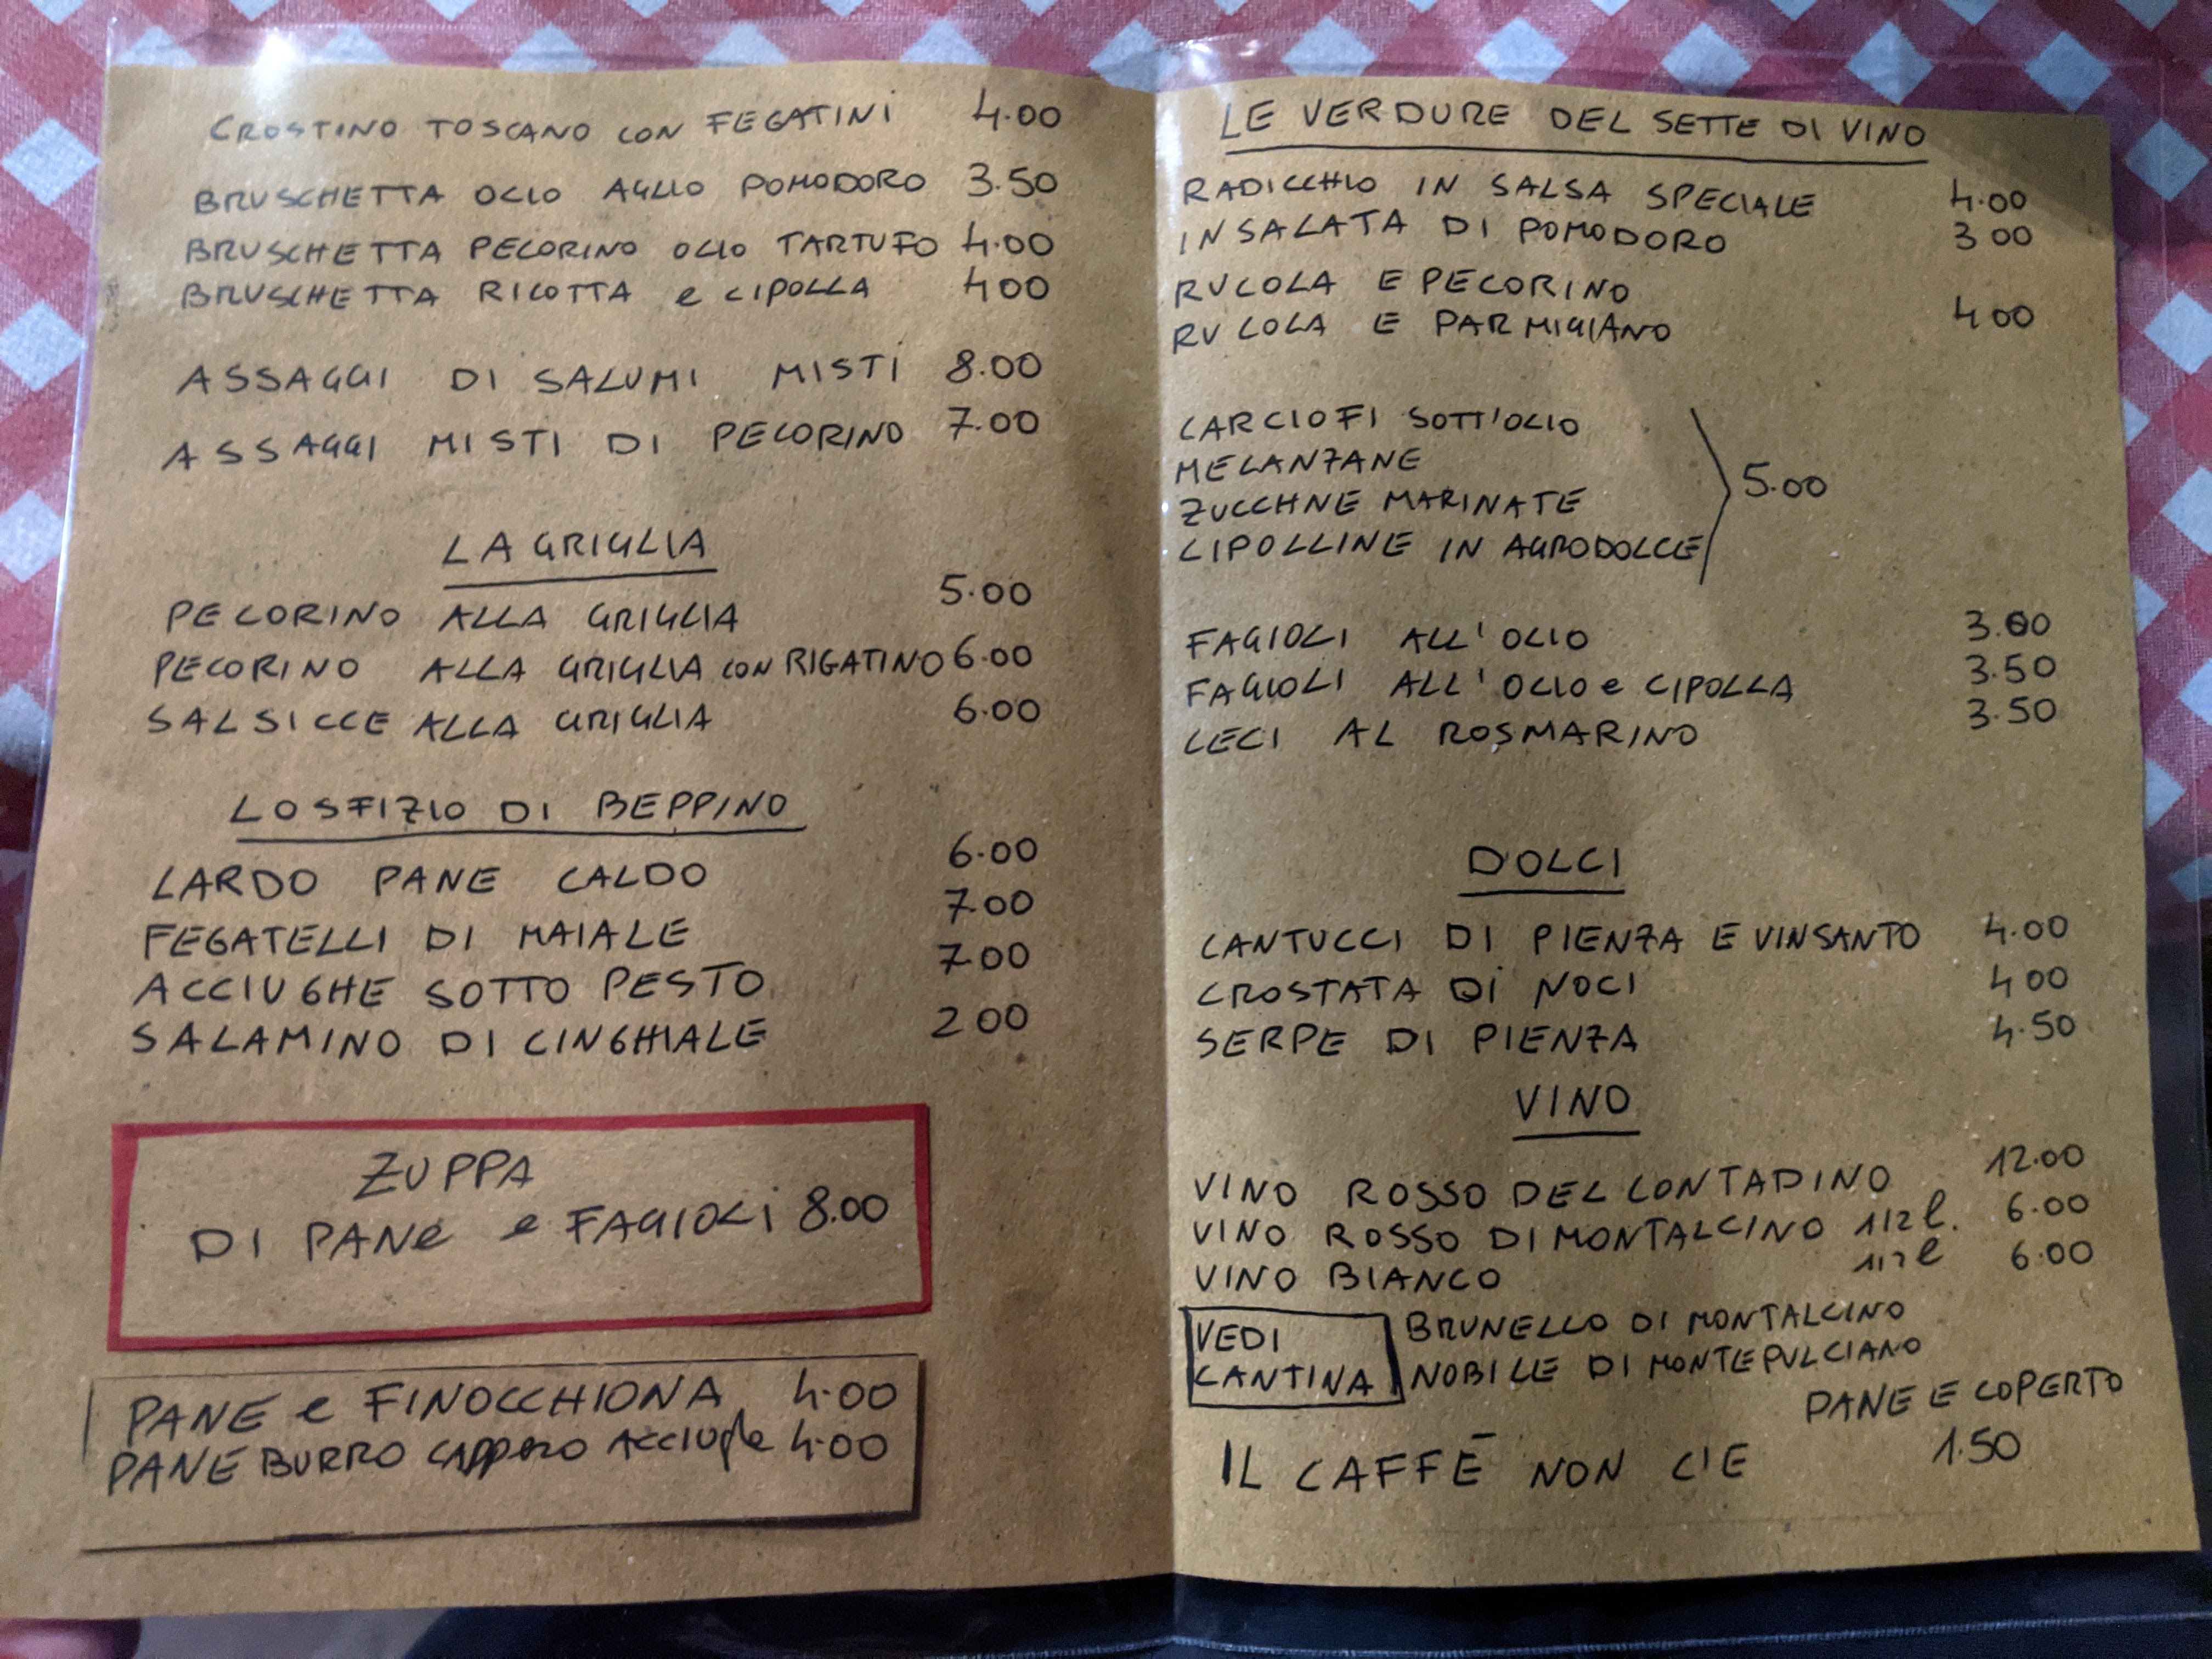 CROSTINO TOSCANO CON FEGATINI 4.00
BRUSCHETTA OLIO AGLIO POMODORO 3.50
BRUSCHETTA PECORINO OLIO TARTUFO 4.00
BRUSCHETTA RICOTTA e CIPOLLA 400
ASSAGGI DI SALUMI MISTI 8.00
ASSAGGI MISTI DI PECORINO 7.00
LA GRIGLIA
PECORINO ALLA GRIGLIA 5.00
PECORINO ALLA GRIGLIA CON RIGATINO 6.00
SALSICCE ALLA GRIGLIA 6.00
LO SFIZIO DI BEPPINO
LARDO PANE CALDO 6.00
FEGATELLI DI MAIALE 7.00
ACCIUGHE SOTTO PESTO 700
SALAMINO DI CINGHIALE 200
ZUPPA
DI PANe e FAGIOLI 8.00
PANE e FINOCCHIONA 4.00
PANE BURRO CAPPERO ACCIUGhe 4.00
LE VERDURE DEL SETTE DI VINO
RADICCHIO IN SALSA SPECIALE 4.00
INSALATA DI POMODORO 3 00
RUCOLA E PECORINO
RUCOLA E PARMIGIANO 400
CARCIOFI SOTT'OLIO
MELANZANE
ZUCCHNE MARINATE 5.00
CIPOLLINE IN AGRODOLCE
FAGIOLI ALL'OLIO 3.00
FAGIOLI ALL'OLIO e CIPOLLA 3.50
CECI AL ROSMARINO 3.50
DOLCI
CANTUCCI DI PIENZA E VINSANTO 4.00
CROSTATA DI NOCI 400
SERPE DI PIENZA 4.50
VINO
VINO ROSSO DEL CONTADINO 12.00
VINO ROSSO DI MONTALCINO 1/2 l. 6.00
VINO BIANCO 1/2 l 6.00
VEDI CANTINA
BRUNELLO DI MONTALCINO
NOBILE DI MONTEPULCIANO
PANE E COPERTO
1.50
IL CAFFĒ NON C'E